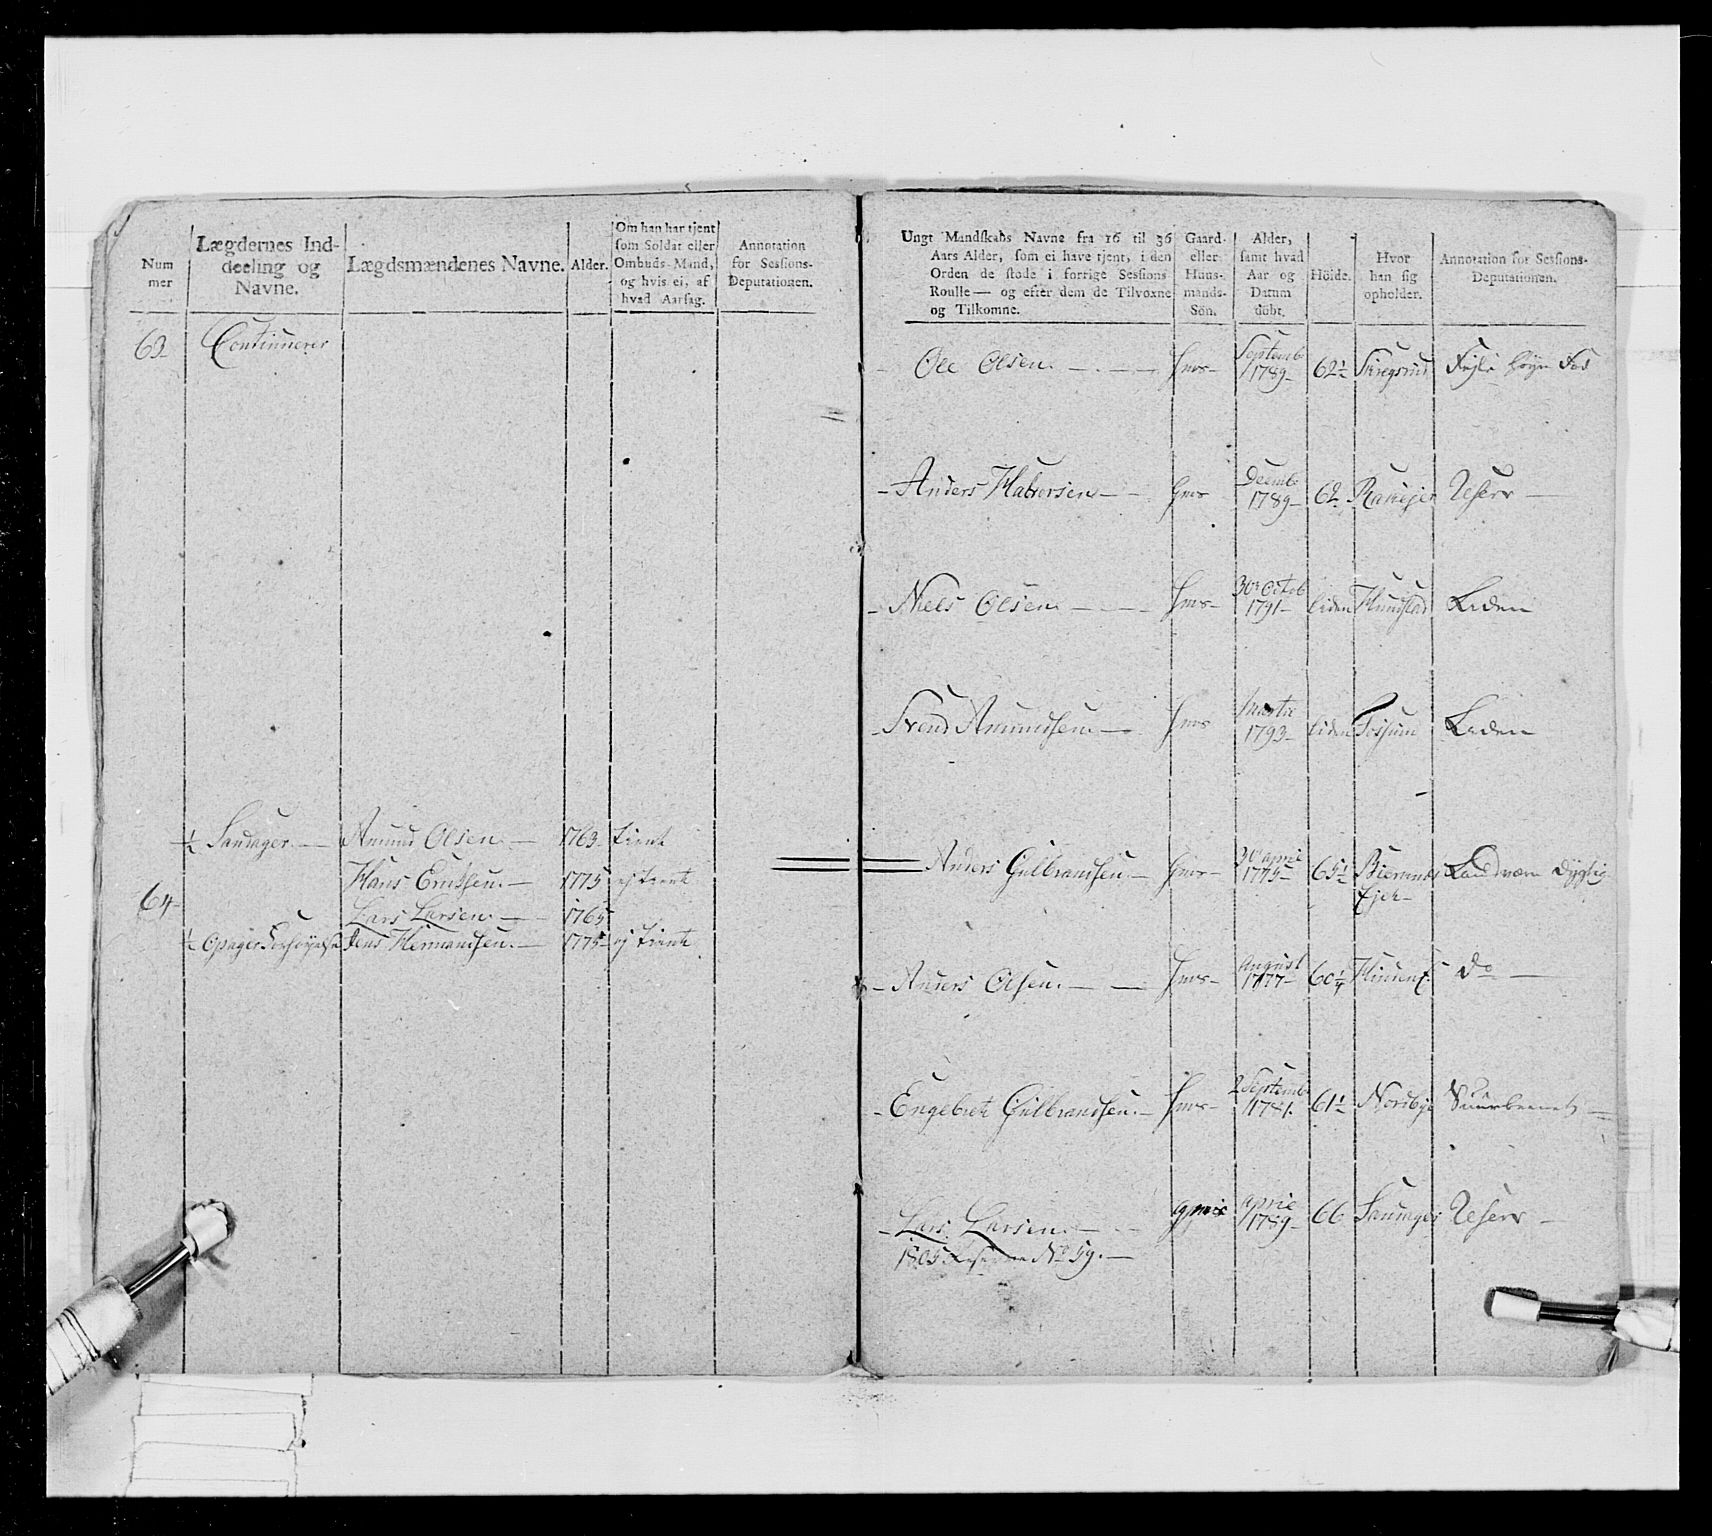 Num
mer
Lægdernes Ind-
deeling og
Navne.
Lægdsmændenes Navne.
Alder.
Om han har tjent
som Soldat eller
Ombuds-Mand,
og hvis ei, af
hvad Aarsag.
Annotation
for Sessions-
Deputationen.
63
Continuerer
½ Sauager Amund Olsen 1763 tient
Hans Ericksen 1775 ej tient
64
Lars Larsen 1765
½ Opager Jens Hermandsen 1775 ej tient
Ungt Mandskabs Navne fra 16 til 36
Aars Alder, som ei have tjent, i den
Orden de stode i forrige Sessions
Roulle — og efter dem de Tilvoxne
og Tilkomne.
Gaard-
eller
Huus-
mands-
Sön.
Alder,
samt hvad
Aar og
Datum
födt.
Höide.
Hvor
han sig
opholder.
Annotation for Sessions-
Deputationen.
Ole Olsen Septemb 1789 62½
Anders Halvorsen Decemb 1789 62 Reserv
Niels Olsen 30 Octob 1791 liden Liden
Svend Amundsen Martii 1793 liden Fossum Liden
Anders Gulbrandsen 30 april 1775 65½ Landværn Dygtig
Ejer
Anders Olsen August 1777 60¼ Do
Engebret Gulbrandsen 2 Septemb 1781 61½ Nordbye
Lars Larsen april 1789 66 Sauager Reserv
1805 No 59.